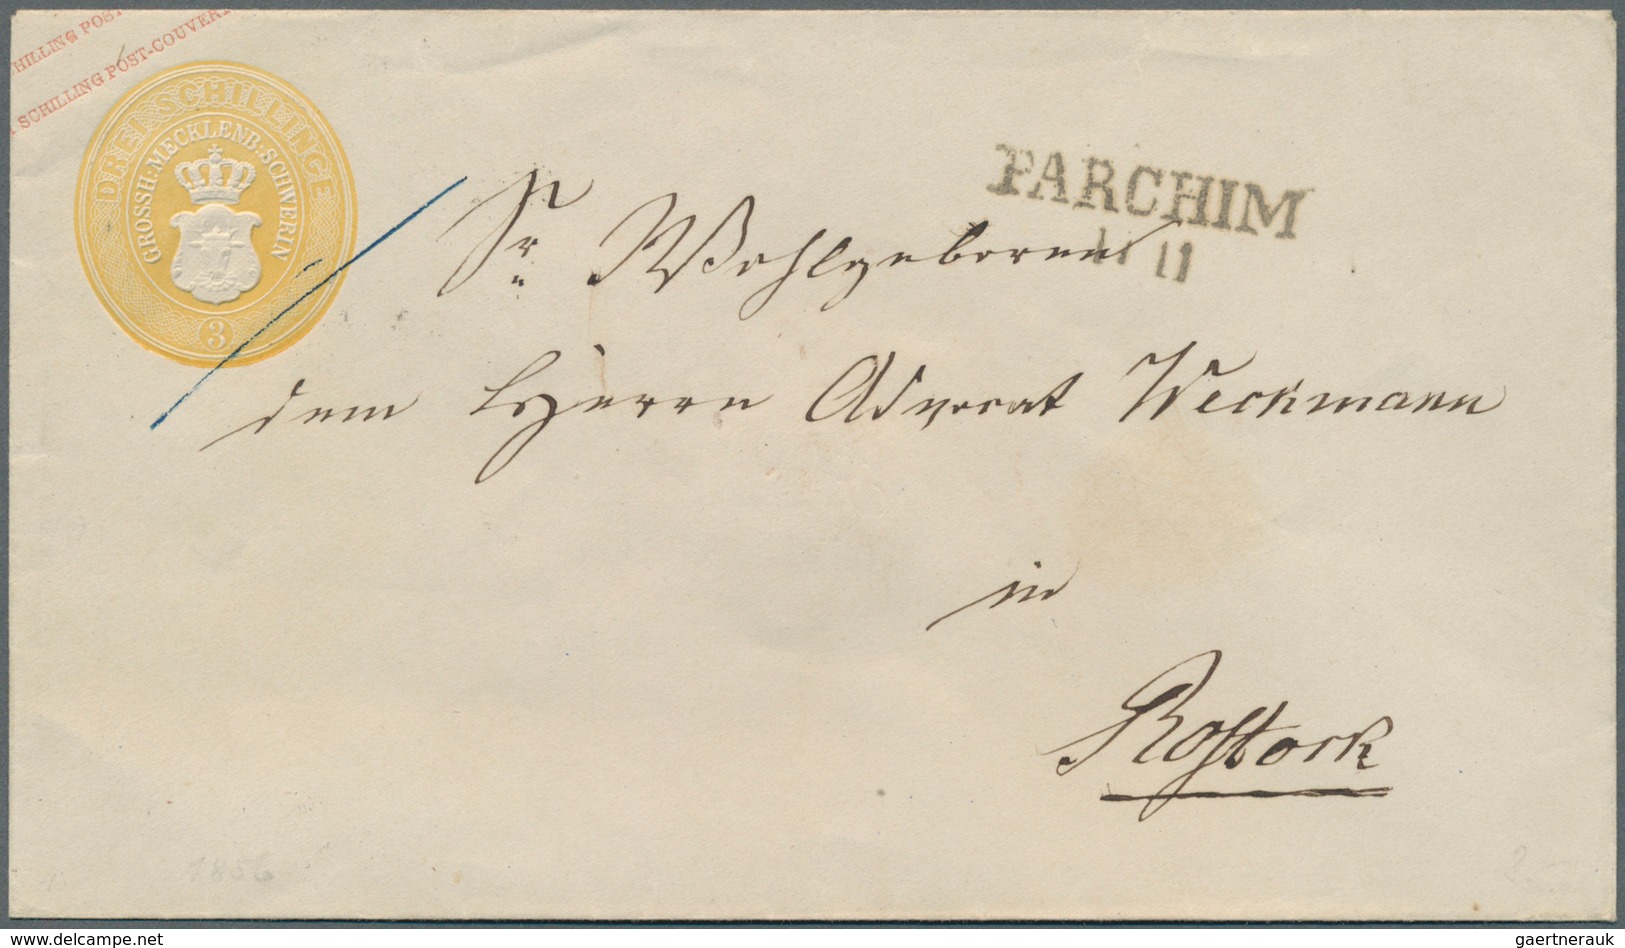 HILLING POST
SCHILLING POST-COUVERT
DREI SCHILLINGE
GROSSH: MECKLENB: SCHWERIN
3
PARCHIM
11
Sr. Wohlgeboren
dem Herrn Advocat Weckmann
in
Rostock
1856
gaertnerauk
© the-philatelist.com